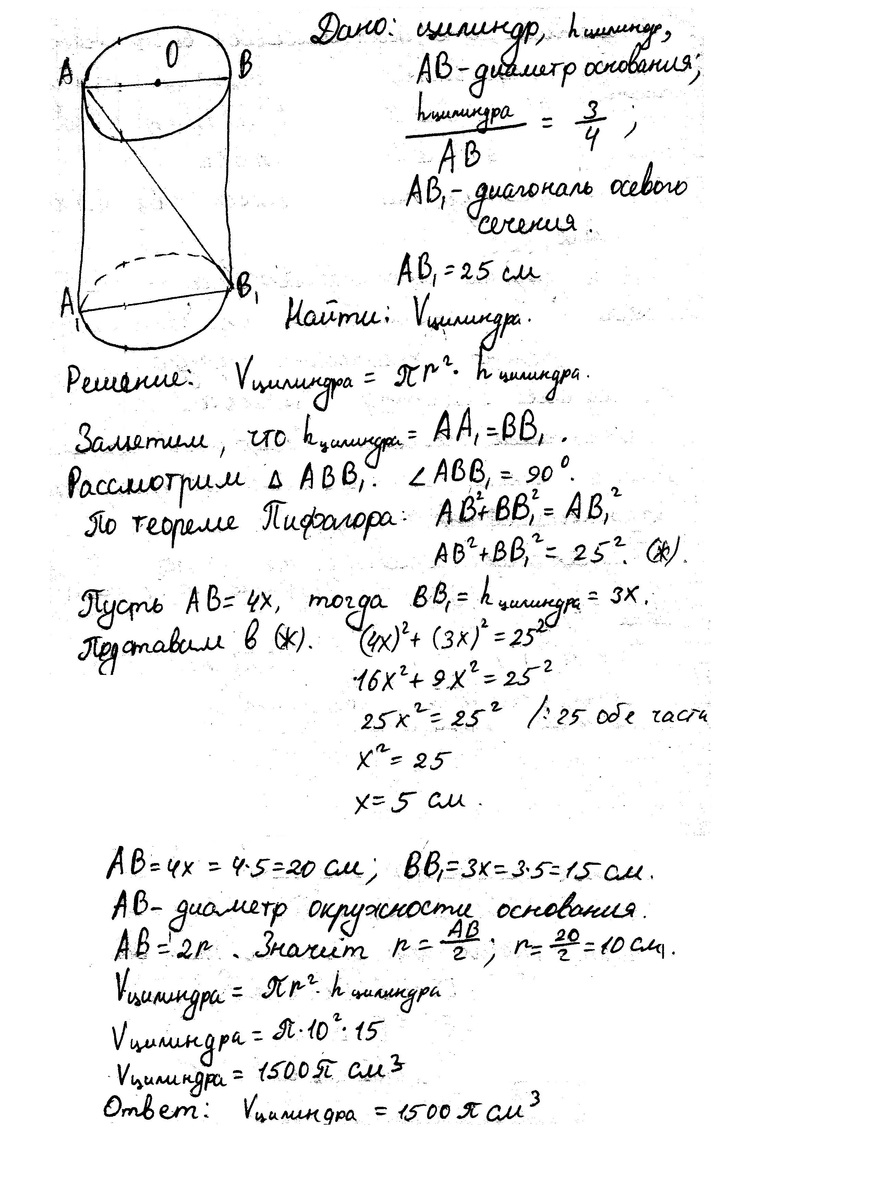 Дано: цилиндр, hцилиндр,
A O B
AB - диаметр основания;
hцилиндра / AB = 3/4 ;
AB₁ - диагональ осевого
сечения.
AB₁ = 25 см
A₁ B₁
Найти: Vцилиндра.
Решение: Vцилиндра = πr² · hцилиндра.
Заметим, что hцилиндра = AA₁ = BB₁.
Рассмотрим Δ ABB₁. ∠ABB₁ = 90°.
По теореме Пифагора: AB² + BB₁² = AB₁²
AB² + BB₁² = 25². (ж).
Пусть AB = 4x, тогда BB₁ = hцилиндра = 3x.
Подставим в (ж). (4x)² + (3x)² = 25²
16x² + 9x² = 25²
25x² = 25² /: 25 обе части
x² = 25
x = 5 см.
AB = 4x = 4·5 = 20 см; BB₁ = 3x = 3·5 = 15 см.
AB - диаметр окружности основания.
AB = 2r. Значит r = AB/2 ; r = 20/2 = 10 см.
Vцилиндра = πr² · hцилиндра
Vцилиндра = π·10²·15
Vцилиндра = 1500π см³
Ответ: Vцилиндра = 1500π см³